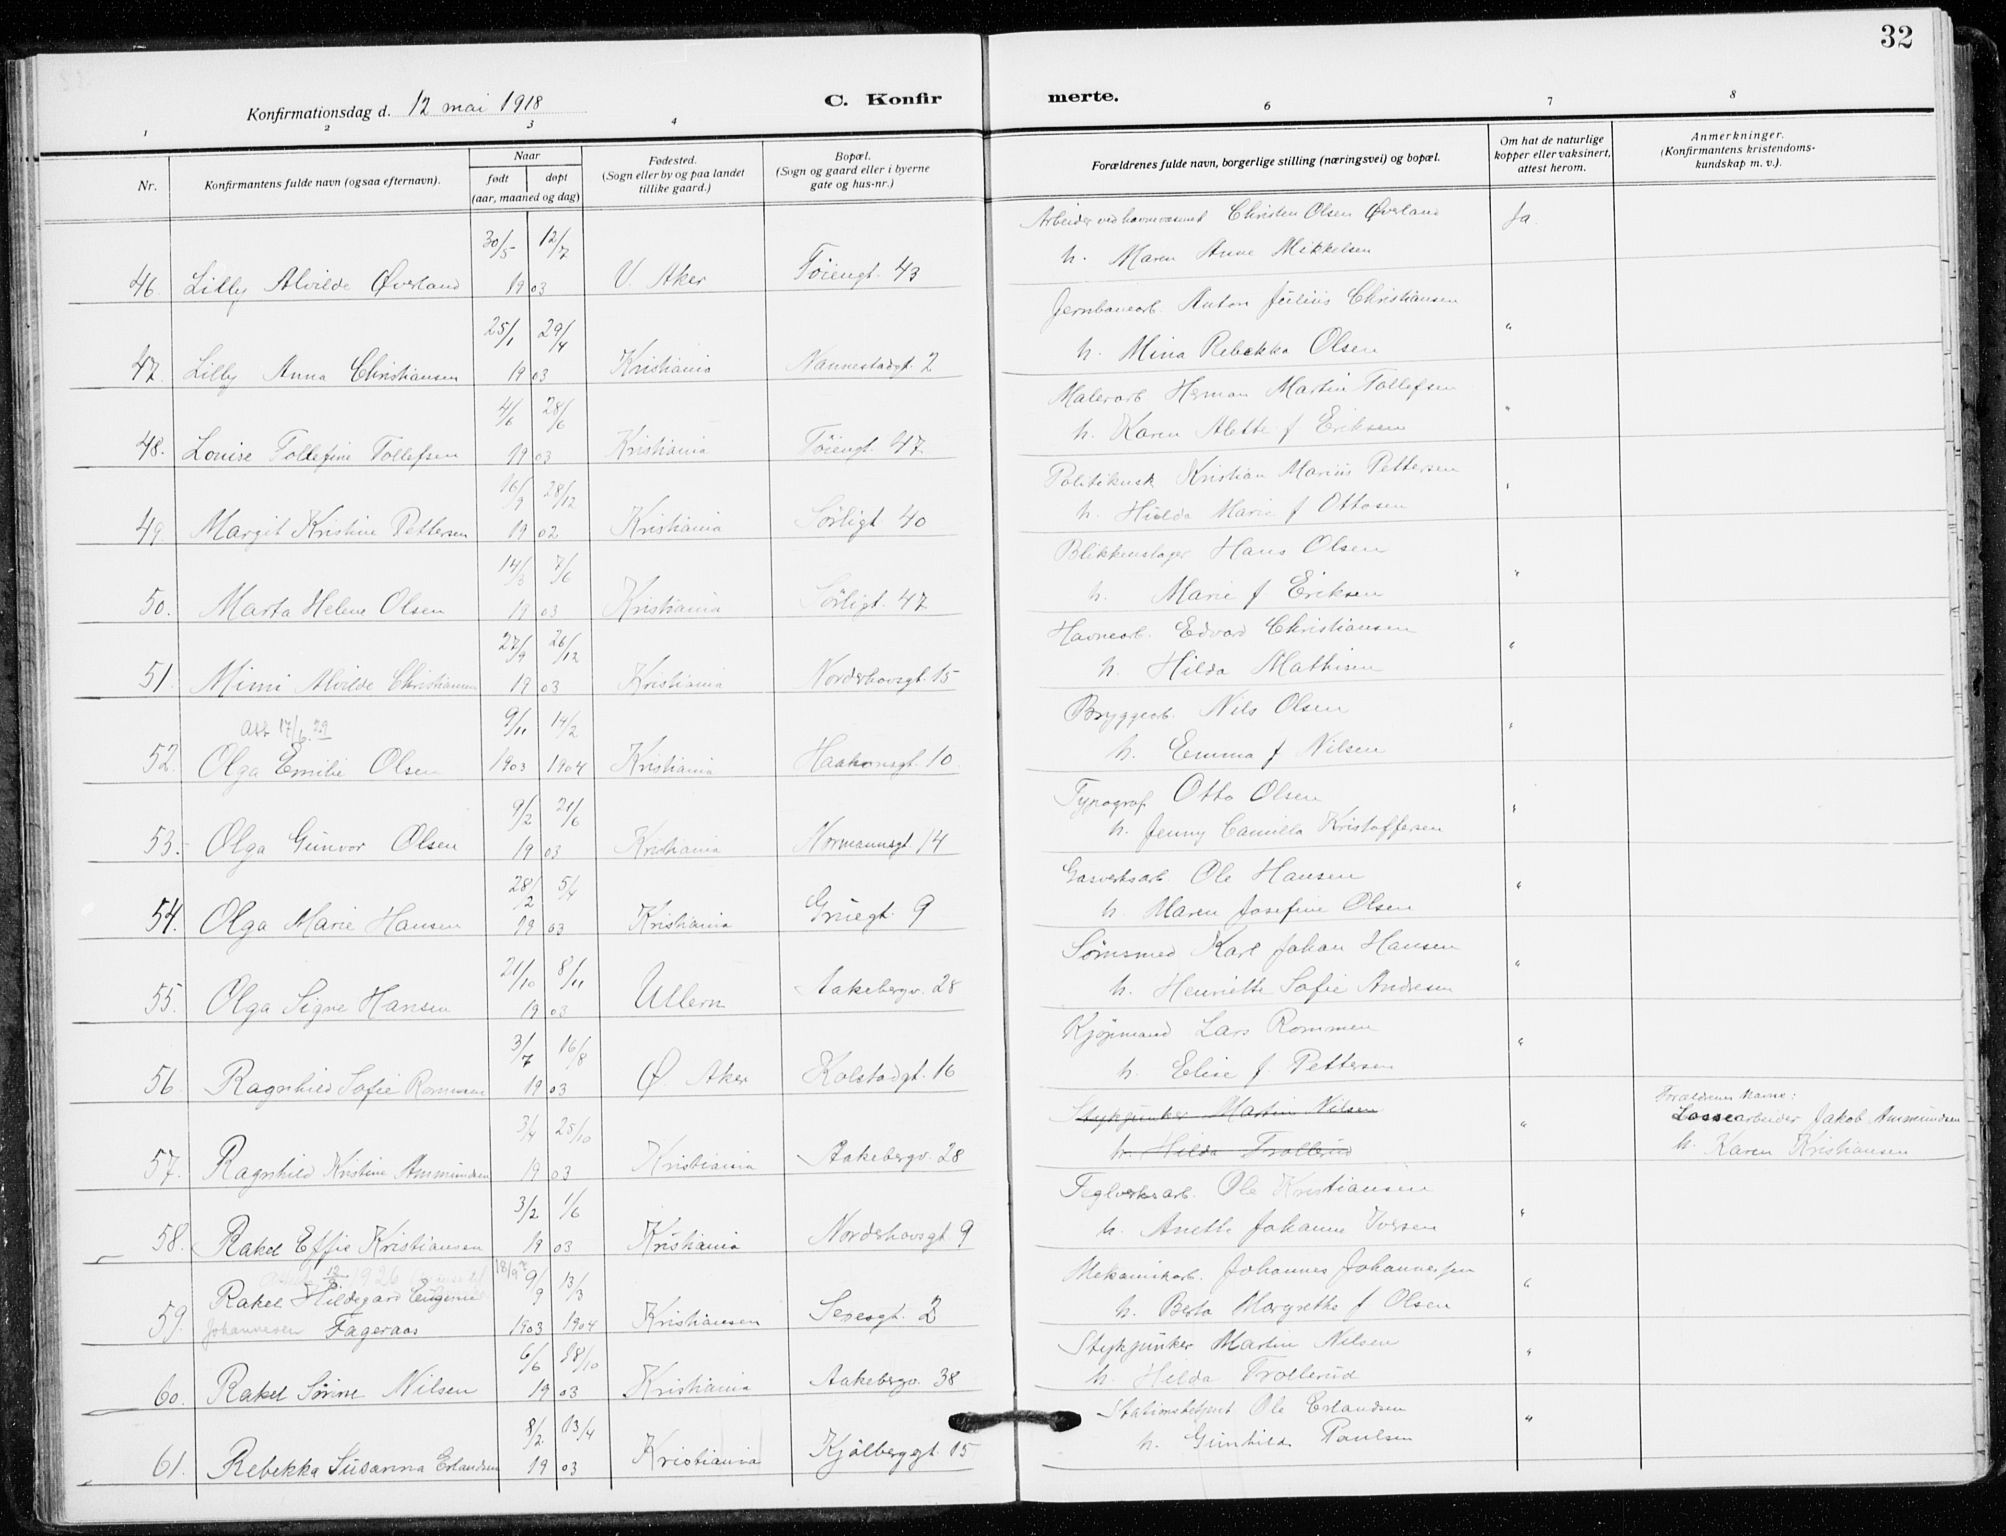 32
Konfirmationsdag d. 12 mai 1918
C. Konfirmerte.
1 2 3 4 6 7 8
Nr.
Konfirmantens fulde navn (ogsaa efternavn).
Naar
født døpt
(aar, maaned og dag)
Fødested.
(Sogn eller by og paa landet
tillike gaard.)
Bopæl.
(Sogn og gaard eller i byerne
gate og hus-nr.)
Forældrenes fulde navn, borgerlige stilling (næringsvei) og bopæl.
Om hat de naturlige
kopper eller vaksinert,
attest herom.
Anmerkninger.
(Konfirmantens kristendoms-
kundskap m. v.).
30/5 12/7 Arbeider ved havnevæsenet Christen Olsen Øverland Ja.
46. Lilly Alvilde Øverland 19 03 V. Aker Tøiengt. 43 h. Maren Anne Mikkelsen
25/1 29/4 Jernbanearb. Anton Julius Christiansen "
47. Lilly Anna Christiansen 19 03 Kristiania Nannestadgt. 2 h. Mina Rebekka Olsen
4/6 28/6 Malerarb. Herman Martin Tollefsen "
48. Louise Tollefine Tollefsen 19 03 Kristiania Tøiengt. 47 h. Karen Alette f Eriksen
16/9 28/12 Politikusk Kristian Marius Pettersen "
49. Margit Kristine Pettersen 19 02 Kristiania Sørligt. 40 h. Hulda Marie f Ottosen
14/3 7/6 Blikkenslager Hans Olsen "
50. Marta Helene Olsen 19 03 Kristiania Sørligt. 47 h. Marie f Eriksen
27/9 26/12 Havnearb. Edvard Christiansen "
51. Mimi Alvilde Christiansen 19 03 Kristiania Norderhovsgt. 15 h. Hilda Mathisen
Att 17/6. 29 9/11 14/2 Bryggearb. Nils Olsen "
52. Olga Emilie Olsen 1903 1904 Kristiania Haakonsgt. 10. h. Emma f Nilsen
9/2 21/6 Typograf Otto Olsen "
53. Olga Gunvor Olsen 19 03 Kristiania Normannsgt. 14 h. Jenny Camilla Kristoffersen
28/2 5/4 Gasverksarb. Ole Hansen "
54. Olga Marie Hansen 19 03 Kristiania Gruegt. 9 h. Maren Josefine Olsen
21/10 8/11 Sømsmed Karl Johan Hansen "
55. Olga Signe Hansen 19 03 Ullern Aakebergv. 28 h. Henriette Sofie Andresen
3/7 16/8 Kjøpmand Lars Rommen "
56. Ragnhild Sofie Rommen 19 03 Ø. Aker Kolstadgt. 16 h. Elise f Pettersen
3/4 25/10 Stykjunker Martin Nilsen " Forældrenes navne:
Lossearbeider Jakob Ammundsen
57. Ragnhild Kristine Ammundsen 19 03 Kristiania Aakebergv. 28 h. Hilda Trollerud h. Karen Kristiansen
3/2 1/6 Teglverksarb. Ole Kristiansen "
58. Rakel Effie Kristiansen 19 03 Kristiania Norderhovsgt 9 h. Anette Johanne Iversen
1926 18/9 9/9 13/3 Mekanikarb. Johannes Johannessen "
Rakel Hildegard Eugenie
59. Johannesen Fageraas 1903 1904 Kristiansen Seresgt. 2 h. Berta Margrethe f Olsen
6/6 18/10 Stykjunker Martin Nilsen "
60. Rakel Sørine Nilsen 19 03 Kristiania Aakebergv. 38 h. Hilda Trollerud
8/2 13/4 Stationsbetjent Ole Erlandsen "
61. Rebekka Susanna Erlandsen 19 03 Kristiania Kjølberggt. 15 h. Gunhild Paulsen